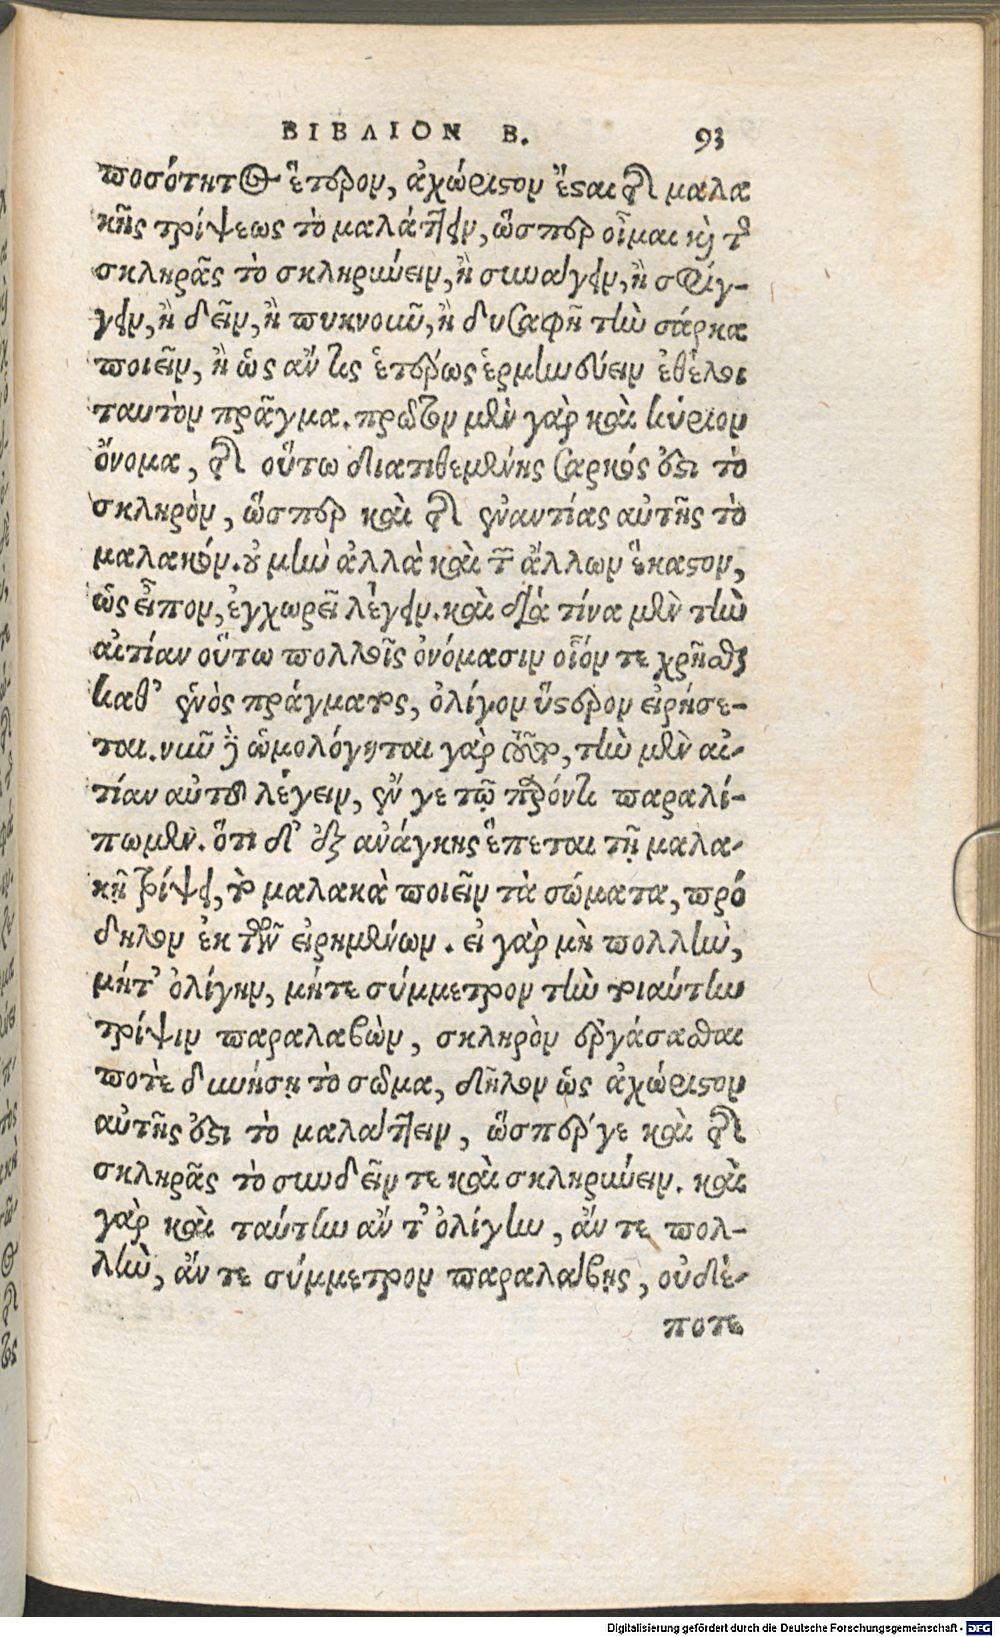 ΒΙΒΛΙΟΝ Β. 93
ποσότητος ἕτερον, ἀχώριστον ἔσται τῆς μαλα
κῆς τρίψεως τὸ μαλάττειν, ὥσπερ οἶμαι καὶ τῆς
σκληρᾶς τὸ σκληρύνειν, ἢ συνάγειν, ἢ σφίγ-
γειν, ἢ δεῖν, ἢ πυκνοῦν, ἢ δυσαφῆ τὴν σάρκα
ποιεῖν, ἢ ὡς ἄν τις ἑτέρως ἑρμηνεύειν ἐθέλοι
ταυτὸν πρᾶγμα. πρῶτον μὲν γὰρ καὶ κύριον
ὄνομα, τῆς οὕτω διατιθεμένης σαρκός ἐστι τὸ
σκληρὸν, ὥσπερ καὶ τῆς ἐναντίας αὐτῆς τὸ
μαλακόν. οὐ μὴν ἀλλὰ καὶ τῶν ἄλλων ἕκαστον,
ὡς εἶπον, ἐγχωρεῖ λέγειν. καὶ διὰ τίνα μὲν τὴν
αἰτίαν οὕτω πολλοῖς ὀνόμασιν οἷόν τε χρῆσθαι
καθ’ ἑνὸς πράγματος, ὀλίγον ὕστερον εἰρήσε-
ται. νυνὶ δὲ ὡμολόγηται γὰρ τοῦτο, τὴν μὲν αἰ-
τίαν αὐτοῦ λέγειν, ἔν γε τῷ παρόντι παραλί-
πωμεν. ὅτι δ’ ἐξ ἀνάγκης ἕπεται τῇ μαλα-
κῇ τρίψει, τὸ μαλακὰ ποιεῖν τὰ σώματα, πρό
δηλον ἐκ τῶν εἰρημένων. εἰ γὰρ μὴ πολλὴν,
μήτ’ ὀλίγην, μήτε σύμμετρον τὴν τοιαύτην
τρίψιν παραλαβὼν, σκληρὸν ἐργάσασθαι
ποτὲ δυνήσῃ τὸ σῶμα, δῆλον ὡς ἀχώριστον
αὐτῆς ἐστι τὸ μαλάττειν, ὥσπερ γε καὶ τῆς
σκληρᾶς τὸ συνδεῖν τε καὶ σκληρύνειν. καὶ
γὰρ καὶ ταύτην ἄν τ’ ὀλίγην, ἄν τε πολ-
λὴν, ἄν τε σύμμετρον παραλάβῃς, οὐδέ-
ποτε
Digitalisierung gefördert durch die Deutsche Forschungsgemeinschaft - DFG